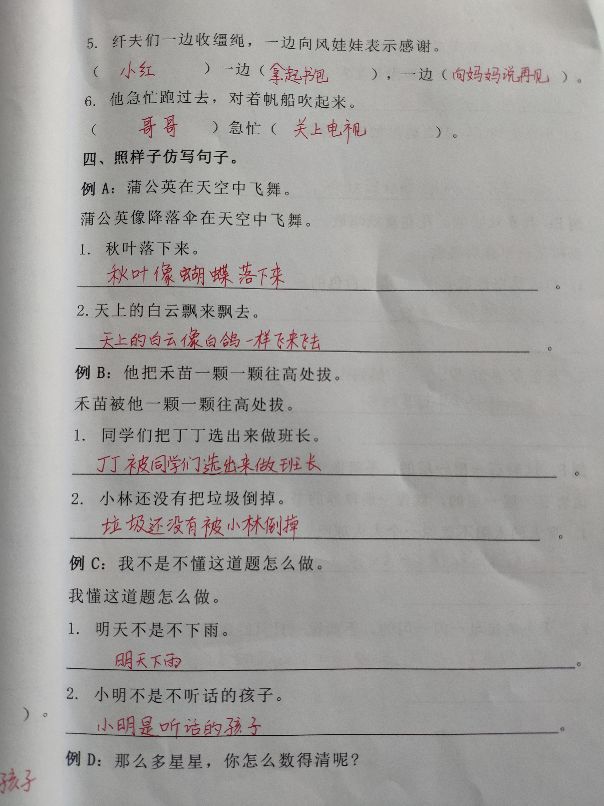 5. 纤夫们一边收缰绳，一边向风娃娃表示感谢。
（ 小红 ）一边（拿起书包 ），一边（向妈妈说再见 ）。
6. 他急忙跑过去，对着帆船吹起来。
（ 哥哥 ）急忙（ 关上电视 ）。
四、照样子仿写句子。
例 A：蒲公英在天空中飞舞。
蒲公英像降落伞在天空中飞舞。
1. 秋叶落下来。
秋叶像蝴蝶落下来 。
2.天上的白云飘来飘去。
天上的白云像白鸽一样飞来飞去 。
例 B：他把禾苗一颗一颗往高处拔。
禾苗被他一颗一颗往高处拔。
1. 同学们把丁丁选出来做班长。
丁丁被同学们选出来做班长 。
2. 小林还没有把垃圾倒掉。
垃圾还没有被小林倒掉 。
例 C：我不是不懂这道题怎么做。
我懂这道题怎么做。
1. 明天不是不下雨。
明天下雨 。
2. 小明不是不听话的孩子。
）。
小明是听话的孩子 。
例 D：那么多星星，你怎么数得清呢？
孩子